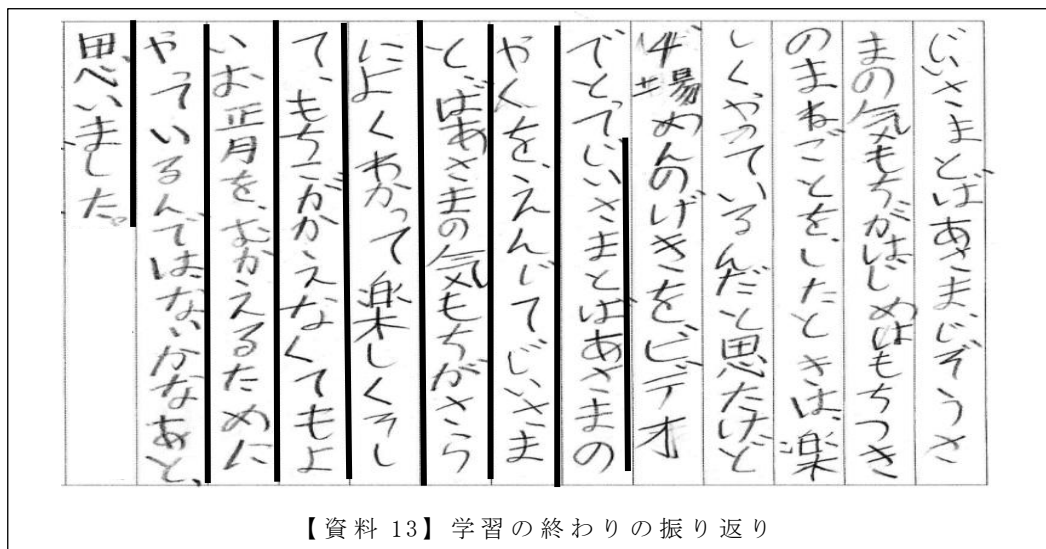 じいさまとばあさま、じぞうさ
まの気もちがはじめはもちつき
のまねごとを、したときは、楽
しくやっているんだと思たけど
4場めんのげきをビデオ
でとてじいさまとばあさまの
やくを、えんじてじいさま
と、ばあさまの気もちがさら
によくわかって楽しくそし
て、もちこがかえなくてもよ
いお正月を、むかえるために
やっているんではないかなあと、
思いました。
【資料 13】学習の終わりの振り返り